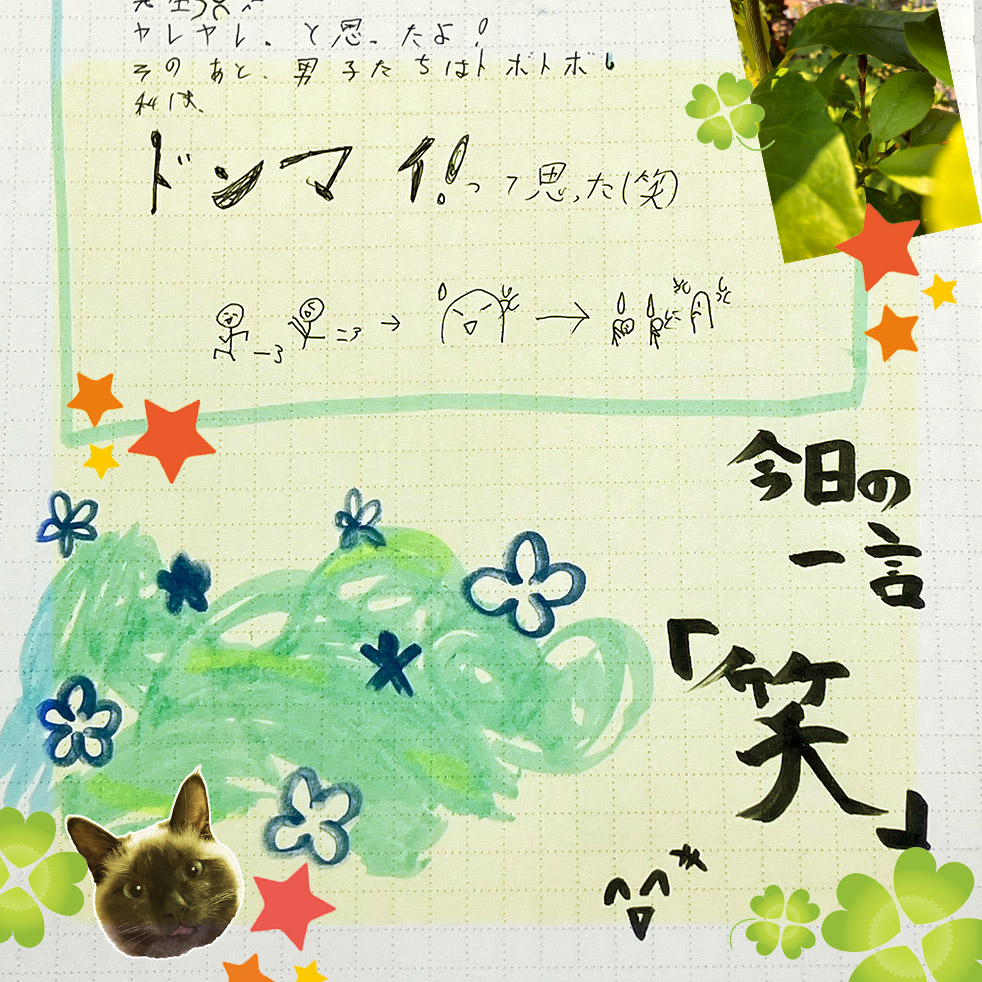 ヤレヤレ。と思ったよ!
そのあと、男子たちはトボトボし
私は、
ドンマイ!って思った(笑)
今日の
一言
「笑」